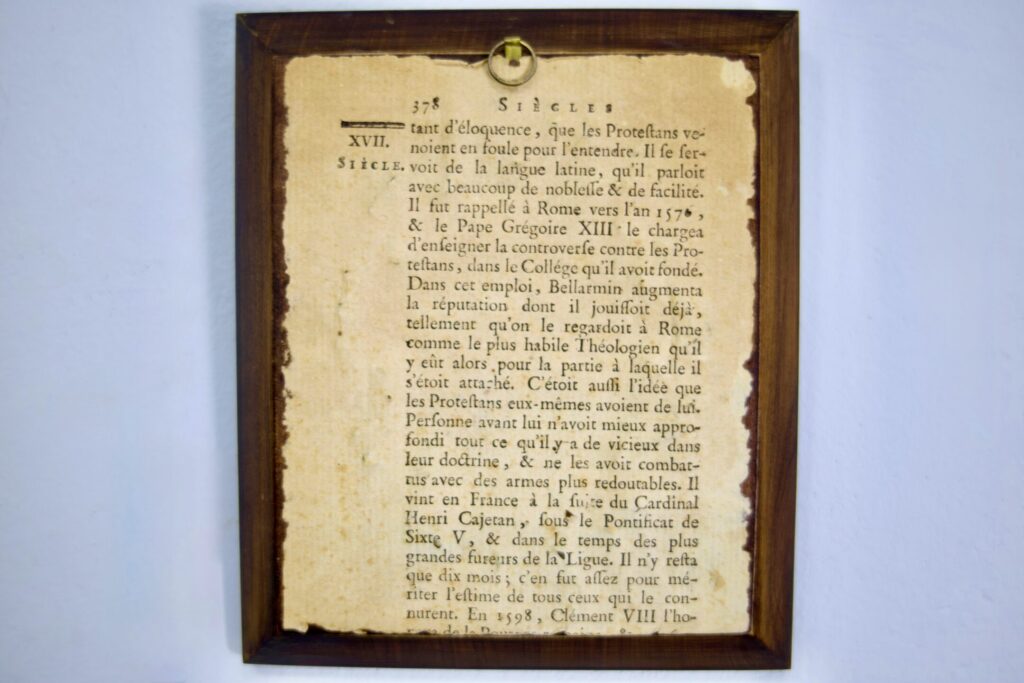 378 SIÈCLES
XVII.
SIÈCLE.
tant d'éloquence, que les Proteſtans ve-
noient en foule pour l'entendre. Il ſe ſer-
voit de la langue latine, qu'il parloit
avec beaucoup de nobleſſe & de facilité.
Il fut rappellé à Rome vers l'an 1576,
& le Pape Grégoire XIII le chargea
d'enſeigner la controverſe contre les Pro-
teſtans, dans le Collége qu'il avoit fondé.
Dans cet emploi, Bellarmin augmenta
la réputation dont il jouiſſoit déjà,
tellement qu'on le regardoit à Rome
comme le plus habile Théologien qu'il
y eût alors pour la partie à laquelle il
s'étoit attaché. C'étoit auſſi l'idée que
les Proteſtans eux-mêmes avoient de lui.
Perſonne avant lui n'avoit mieux appro-
fondi tout ce qu'il y a de vicieux dans
leur doctrine, & ne les avoit combat-
tus avec des armes plus redoutables. Il
vint en France à la ſuite du Cardinal
Henri Cajetan, ſous le Pontificat de
Sixte V, & dans le temps des plus
grandes fureurs de la Ligue. Il n'y reſta
que dix mois; c'en fut aſſez pour mé-
riter l'eſtime de tous ceux qui le con-
nurent. En 1598, Clément VIII l'ho-
de la